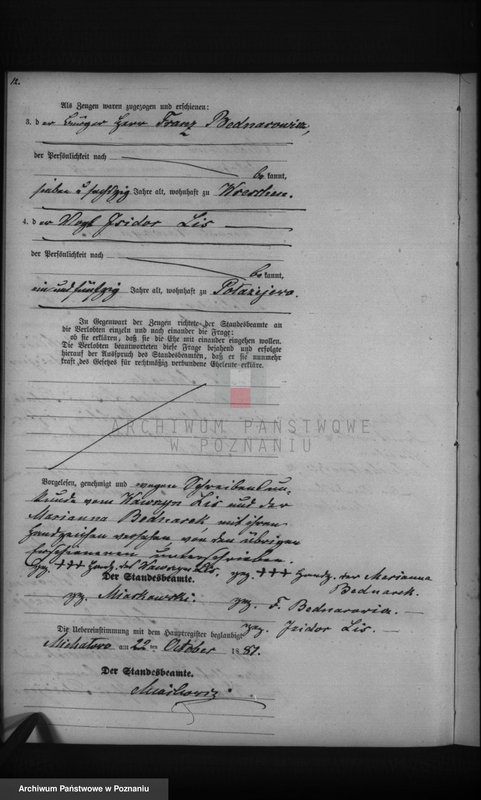 12.
Als Zeugen waren zugezogen und erschienen:
3. der Bürger Herr Franz Bednarowicz,
der Persönlichkeit nach
bekannt,
sieben u sechszig Jahre alt, wohnhaft zu Wreschen.
4. der Vogt Isidor Lis
der Persönlichkeit nach
bekannt,
ein und fünfzig Jahre alt, wohnhaft zu
In Gegenwart der Zeugen richtete der Standesbeamte an
die Verlobten einzeln und nach einander die Frage:
ob sie erklären, daß sie die Ehe mit einander eingehen wollen.
Die Verlobten beantworteten diese Frage bejahend und erfolgte
hierauf der Ausspruch des Standesbeamten, daß er sie nunmehr
kraft des Gesetzes für rechtmäßig verbundene Eheleute erkläre.
ARCHIWUM PAŃSTWOWE
W POZNANIU
Vorgelesen, genehmigt und wegen Schreibensun-
kunde vom Wawrzyn Lis und der
Marianna Bednarek mit ihren
Handzeichen versehen, von den übrigen
Erschienenen unterschrieben.
gez. +++ Handz. des Wawrzyn Lis. gez. +++ Handz. der Marianna
Der Standesbeamte. Bednarek.
gez. gez. F.
gez. Isidor Lis.
Die Uebereinstimmung mit dem Hauptregister beglaubigt
am 22 ten October 1881.
Der Standesbeamte.
Archiwum Państwowe w Poznaniu